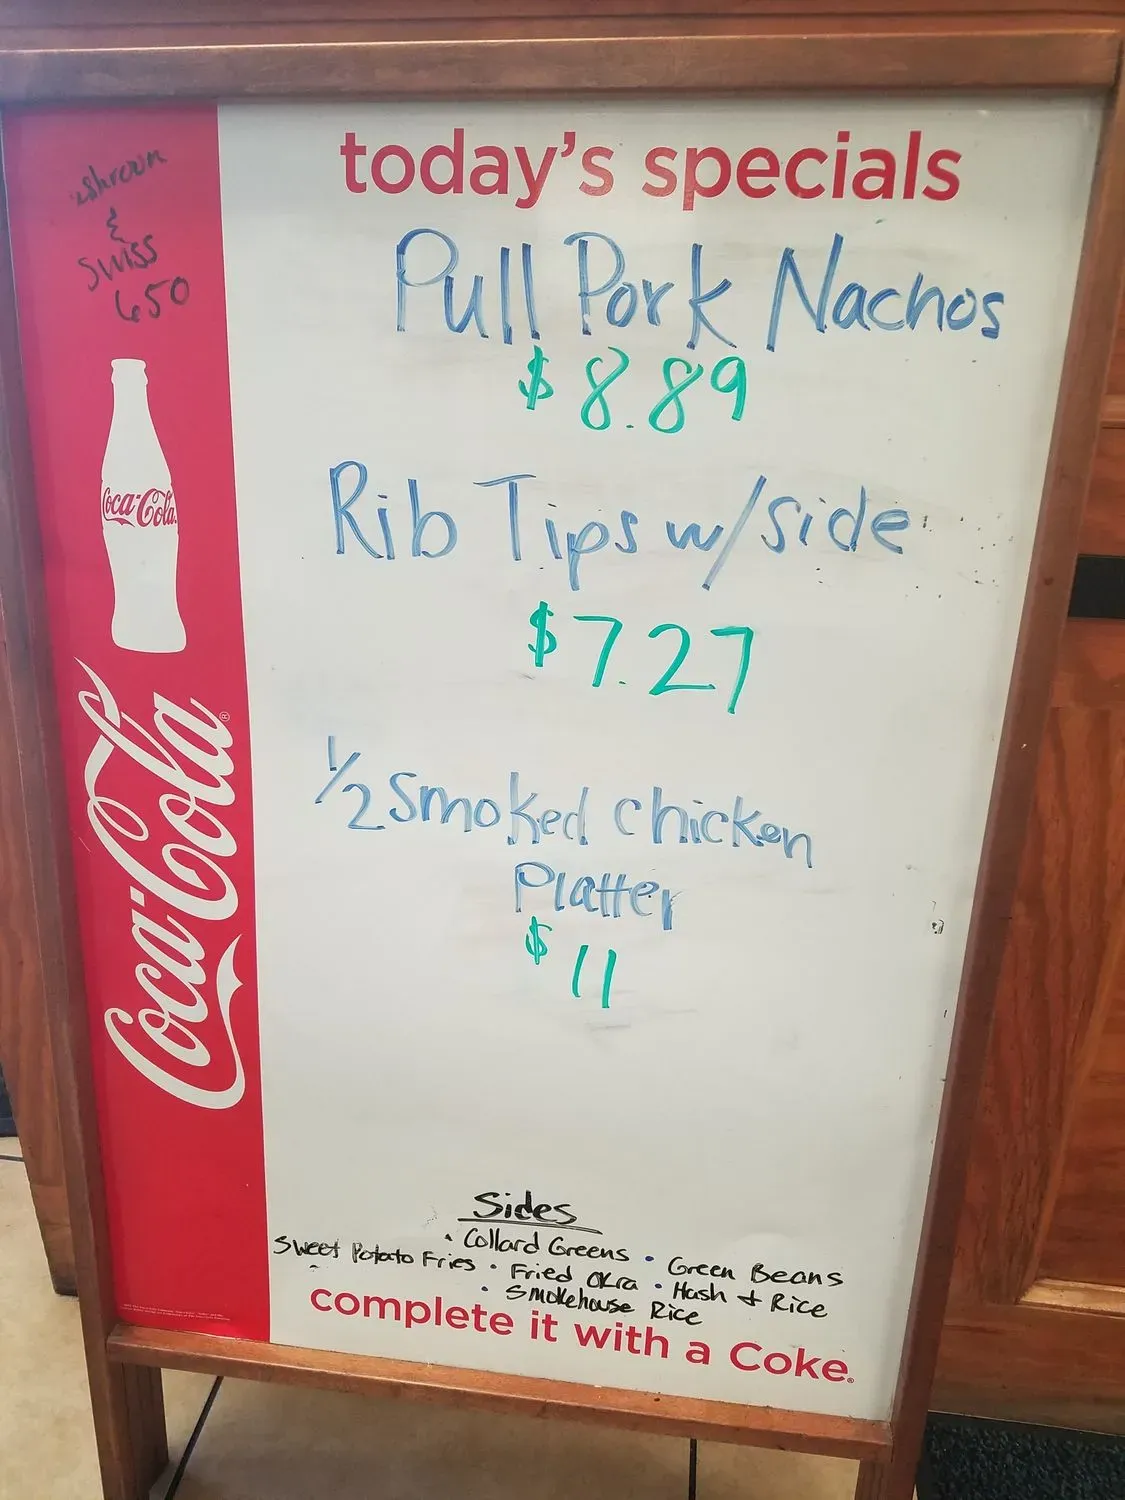 today's specials
Pull Pork Nachos
$8.89
Rib Tips w/side
$7.27
1/2 smoked chicken
Platter
$11
Sides
• Collard Greens • Green Beans
Sweet Potato Fries • Fried Okra • Hash & Rice
• Smokehouse Rice
complete it with a Coke®
&
Swiss
650
Coca-Cola
Coca-Cola®